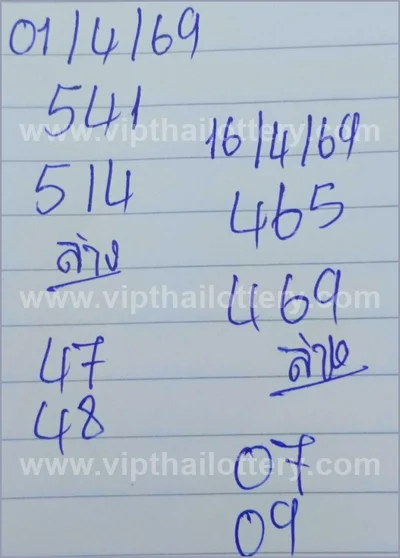 01/4/69
541
www.vipthailottery.com
514
ล่าง
47
48
16/4/69
465
www.vipthailottery.com
469
ล่าง
www.vipthailottery.com
07
09